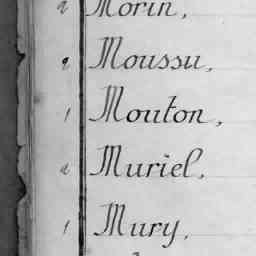 Morin,
Moussu,
Mouton,
Muriel,
Mury,